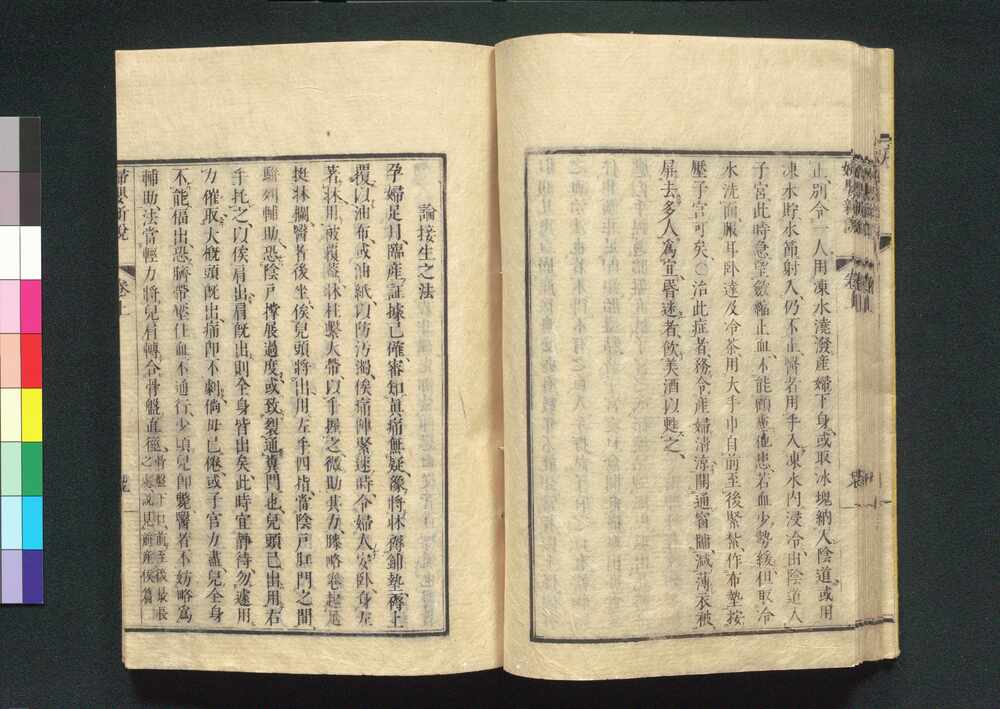 止別令一人用凍水澆潑產婦下身或取冰塊納入陰道或用
凍水貯水節射入仍不止醫者用手入凍水內浸冷出陰道入
子宮此時急望斂縮止血不能顧慮他患若血少勢緩但取冷
水洗面眼耳卧達及冷茶用大手巾自前至後緊紮作布墊按
壓子宮可矣○治此症者務令產婦清涼開通窗牖減薄衣被
屏去多人為宜昏迷者飲美酒以甦之
論接生之法
孕婦足月臨產証據已確審知眞痛無疑豫將牀褥鋪墊褥上
覆以油布或油紙以防汚濁俟痛陣緊速時令婦人安卧身左
著牀用被覆蓋牀柱繫大帶以手握之微助其力膝略卷起足
挺牀欄醫者後坐俟兒頭將出用左手四指當陰戸肛門之間
緊對輔助恐陰戸撑展過度或致裂通糞門也兒頭已出用右
手托之以俟肩出肩旣出則全身皆出矣此時宜靜待勿遽用
力催取大槪頭旣出痛卽不劇倘母已倦或子宮力盡兒全身
不能偪出恐臍帶壓住血不通行少頃兒卽斃醫者不妨略爲
輔助法當輕力將兒肩轉合骨盤直徑
婦嬰新說
卷上